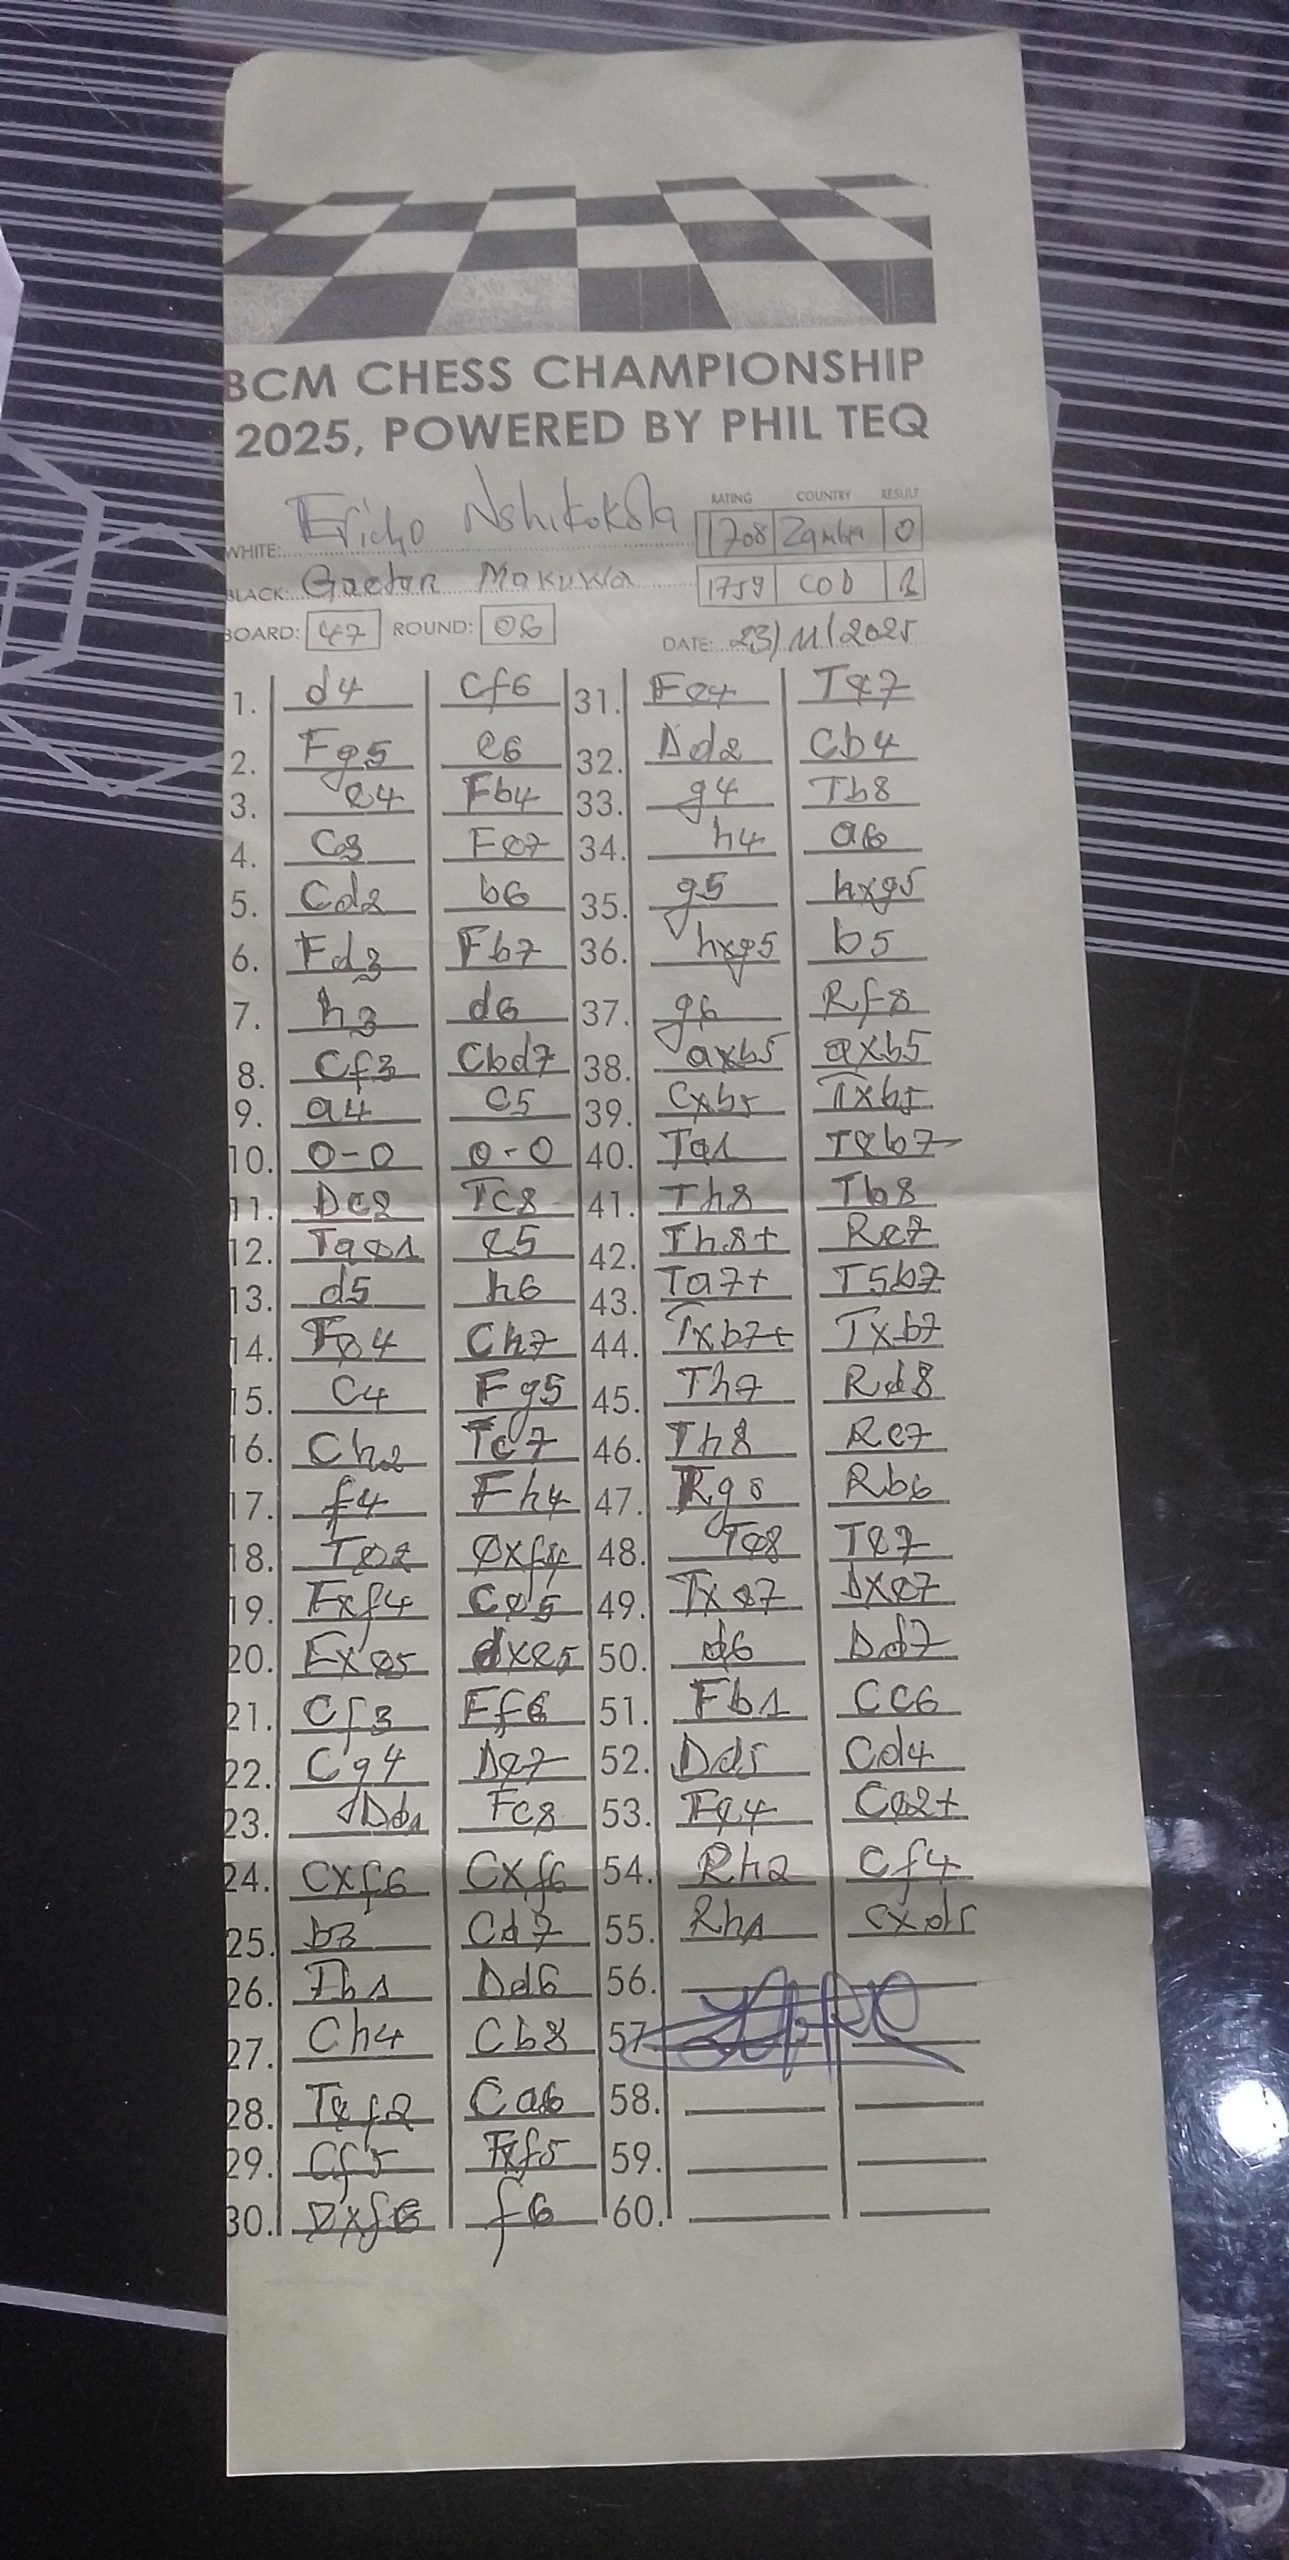 BCM CHESS CHAMPIONSHIP
2025, POWERED BY PHIL TEQ
RATING COUNTRY RESULT
WHITE: Nshikokola 1708 Zambia 0
BLACK: Gaetan Makukwa 1759 COD 1
BOARD: 47 ROUND: 06 DATE: 23/11/2025
1. d4 Cf6
2. Fg5 e6
3. e4 Fb4
4. C3 Fe7
5. Cd2 b6
6. Fd3 Fb7
7. h3 d6
8. Cf3 Cbd7
9. a4 C5
10. 0-0 0-0
11. De2 Tc8
12. Tae1 e5
13. d5 h6
14. Fe4 Ch7
15. C4 Fg5
16. Ch2 Tc7
17. f4 Fh4
18. Te2 exf4
19. Fxf4 Ce5
20. Fxe5 dxe5
21. Cf3 Ff6
22. Cg4 De7
23. Db1 Fc8
24. Cxf6 Cxf6
25. b3 Cd7
26. Fb1 Dd6
27. Ch4 Cb8
28. Tef2 Ca6
29. Cf5 Fxf5
30. Dxf5 f6
31. Fe4 Te7
32. Dd2 Cb4
33. g4 Tb8
34. h4 a6
35. g5 hxg5
36. hxg5 b5
37. g6 Rf8
38. axb5 axb5
39. Cxb5 Txb5
40. Ta1 Teb7
41. Th8 Tb8
42. Th8+ Re7
43. Ta7+ T5b7
44. Txb7+ Txb7
45. Th7 Rd8
46. Th8 Rc7
47. Rb6
48. Te8 Te7
49. Txe7 Dxe7
50. d6 Dd7
51. Fb1 CC6
52. Dd5 Cd4
53. Fe4 Ce2+
54. Rh2 Cf4
55. Rh1 cxd5
56.
57.
58.
59.
60.